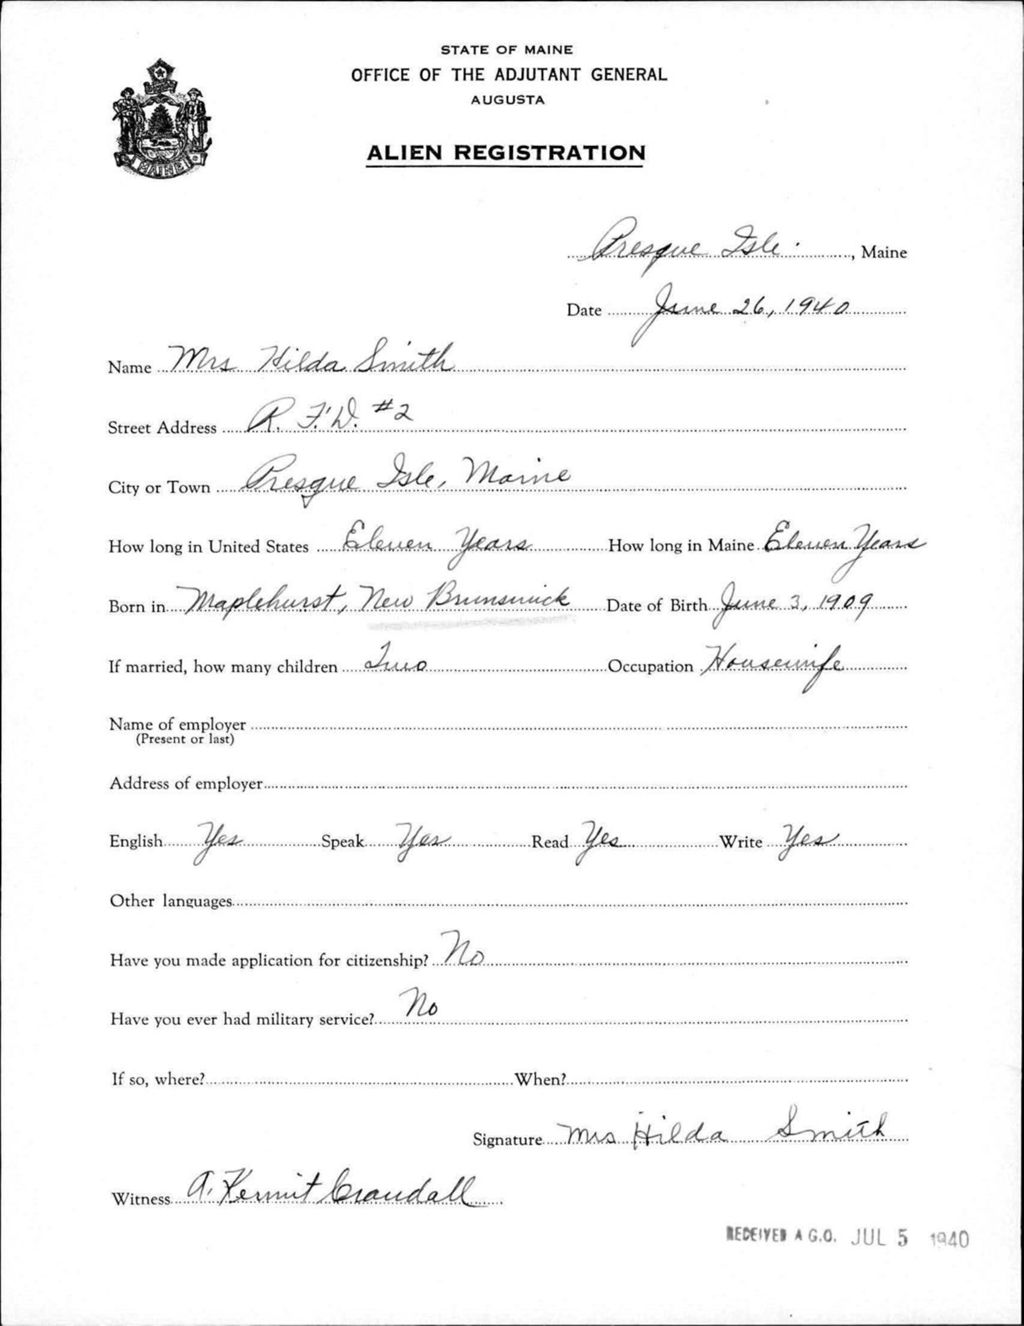 STATE OF MAINE
OFFICE OF THE ADJUTANT GENERAL
AUGUSTA
ALIEN REGISTRATION
MAINE
Presque Isle, Maine
Date June 26, 1940
Name Mrs Hilda Smith
Street Address R. F. D. #2
City or Town Presque Isle, Maine
How long in United States Eleven Years How long in Maine Eleven Years
Born in Maplehurst, New Brunswick Date of Birth June 3, 1909
If married, how many children Two Occupation Housewife
Name of employer
(Present or last)
Address of employer
English Yes Speak Yes Read Yes Write Yes
Other languages
Have you made application for citizenship? No
Have you ever had military service? No
If so, where? When?
Signature Mrs Hilda Smith
Witness A. Kermit Crandall
RECEIVED A.G.O. JUL 5 1940